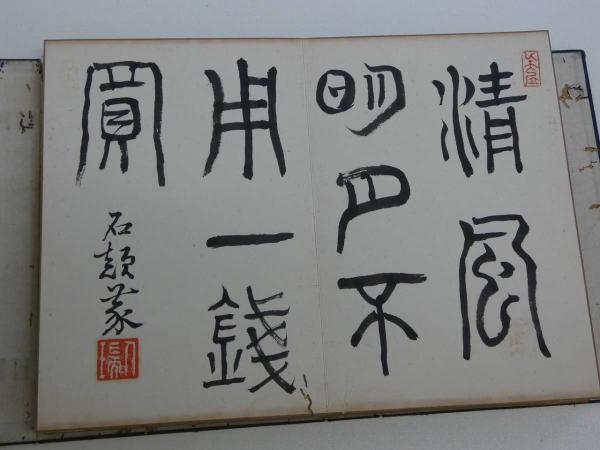 清風
明月不
用一錢
買
石頡篆